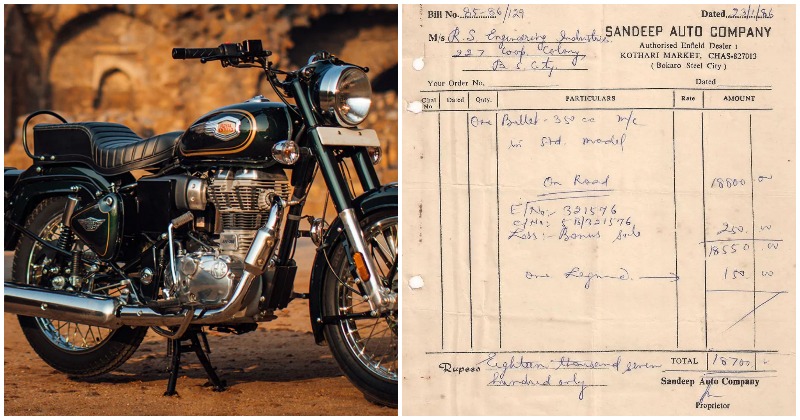 Bill No. 85-86/129
Dated 23/1/86
SANDEEP AUTO COMPANY
Authorised Enfield Dealer :
KOTHARI MARKET, CHAS-827013
( Bokaro Steel City )
M/s R.S. Engineering Industries
227 Coop. Colony
B.S. City
Your Order No.
Dated
Chal No. Dated Qnty. PARTICULARS Rate AMOUNT
One Bullet - 350 cc m/c
in Std. model
On Road 18800 00
E/No:- 321576
C/No: 5 B/321576
Less:- Bonus 250 00
18550 00
One 150 00
TOTAL 18700
Rupees Eighteen thousand seven
hundred only
Sandeep Auto Company
Proprietor